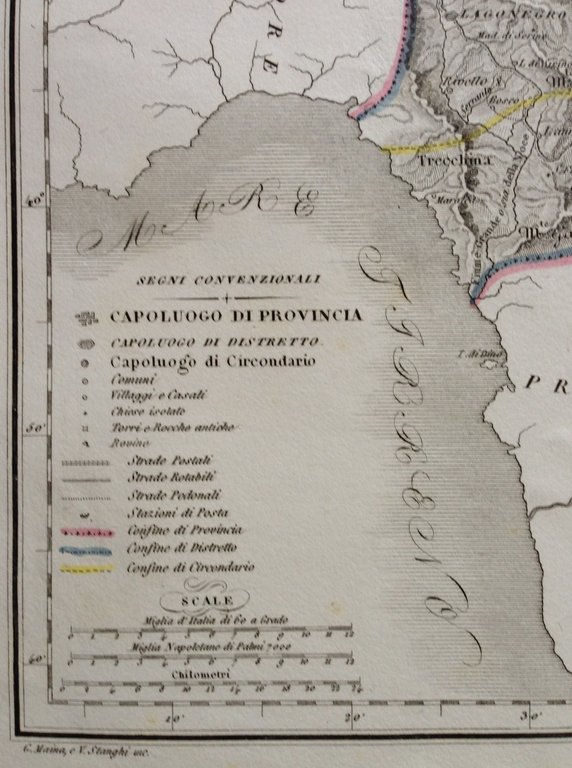 RE
LAGONEGRO
Mad. di Serino
Rivello
Bosco
Trecchina
MARE
TIRRENO
40°
SEGNI CONVENZIONALI
CAPOLUOGO DI PROVINCIA
CAPOLUOGO DI DISTRETTO
Capoluogo di Circondario
Comuni
Villaggi e Casali
Chiese isolate
Torri e Rocche antiche
Rovine
Strade Postali
Strade Rotabili
Strade Pedonali
Stazioni di Posta
Confine di Provincia
Confine di Distretto
Confine di Circondario
I. di Dino
PR
50'
SCALE
Miglia d'Italia di 60 a Grado
0 1 2 3 4 5 6 7 8 9 10 11 12
Miglia Napoletane di Palmi 7000
0 1 2 3 4 5 6 7 8 9 10 11 12
Chilometri
0 2 4 6 8 10 12 14 16 18 20 22 24
60'
10' 20' 30'
G. Maina, e V. Stanghi inc.